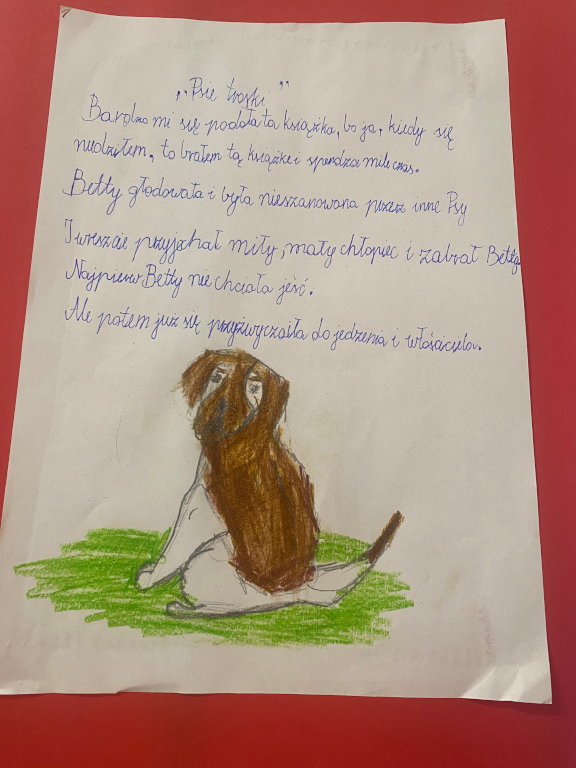 „Psie troski”
Bardzo mi się podoła ta książka, bo ja, kiedy się
nudzyłem, to brałem tą książke i spendza miłe czas.
Betty głodowała i była nieszanowana przez inne Psy
I wreszcie przyjachał miły, mały chłopiec i zabrał Betty
Najpierw Betty nie chciała jeść.
Ale potem już się przyzwyczaiła do jedzenia i właściciela.